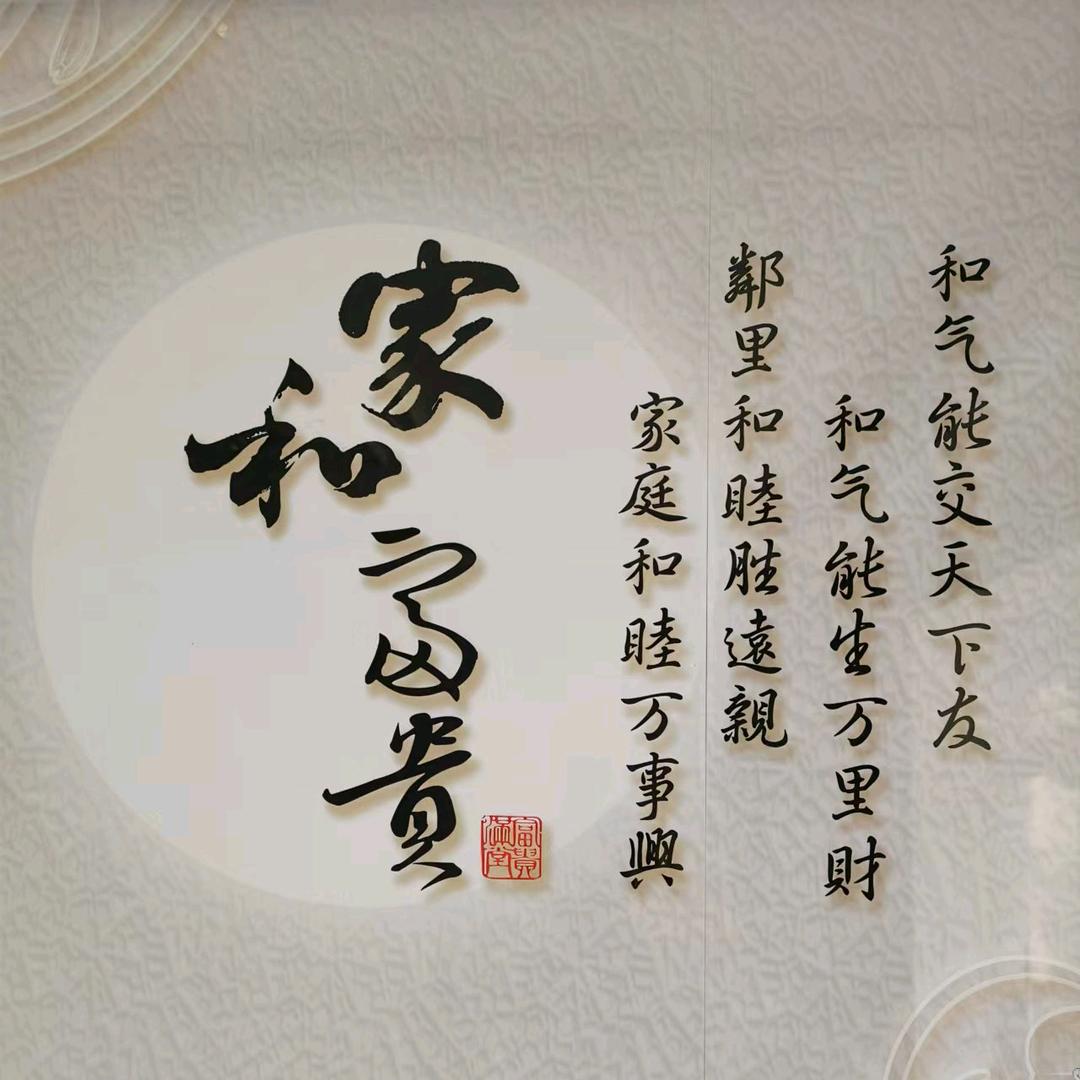 和气能交天下友
和气能生万里財
鄰里和睦胜遠親
家庭和睦万事興
家和富贵
富貴滿堂